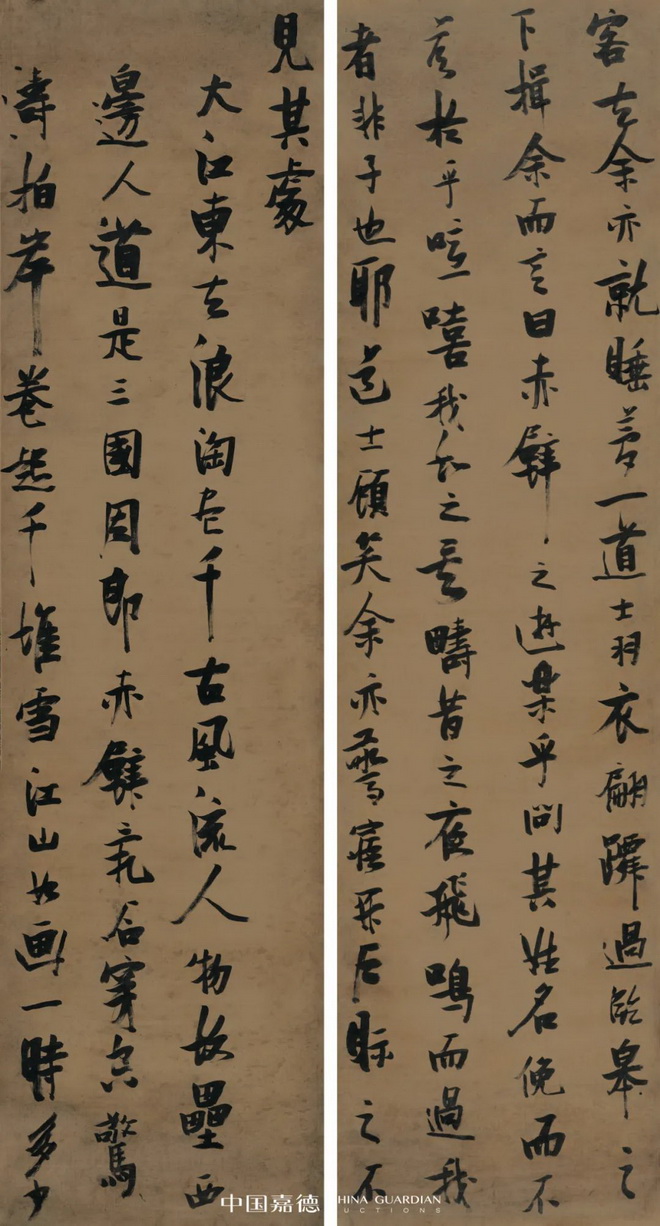 客去余亦就睡夢一道士羽衣翩躚過臨皋之
下揖余而言曰赤壁之遊樂乎問其姓名俛而不
荅於乎噫嘻我知之矣疇昔之夜飛鳴而過我
者非子也耶道士顧笑余亦驚寤開戶視之不
見其處
大江東去浪淘盡千古風流人物故壘西
邊人道是三國周郎赤壁亂石穿空驚
濤拍岸卷起千堆雪江山如画一時多少
中国嘉德 HINA GUARDIAN
UCTIONS